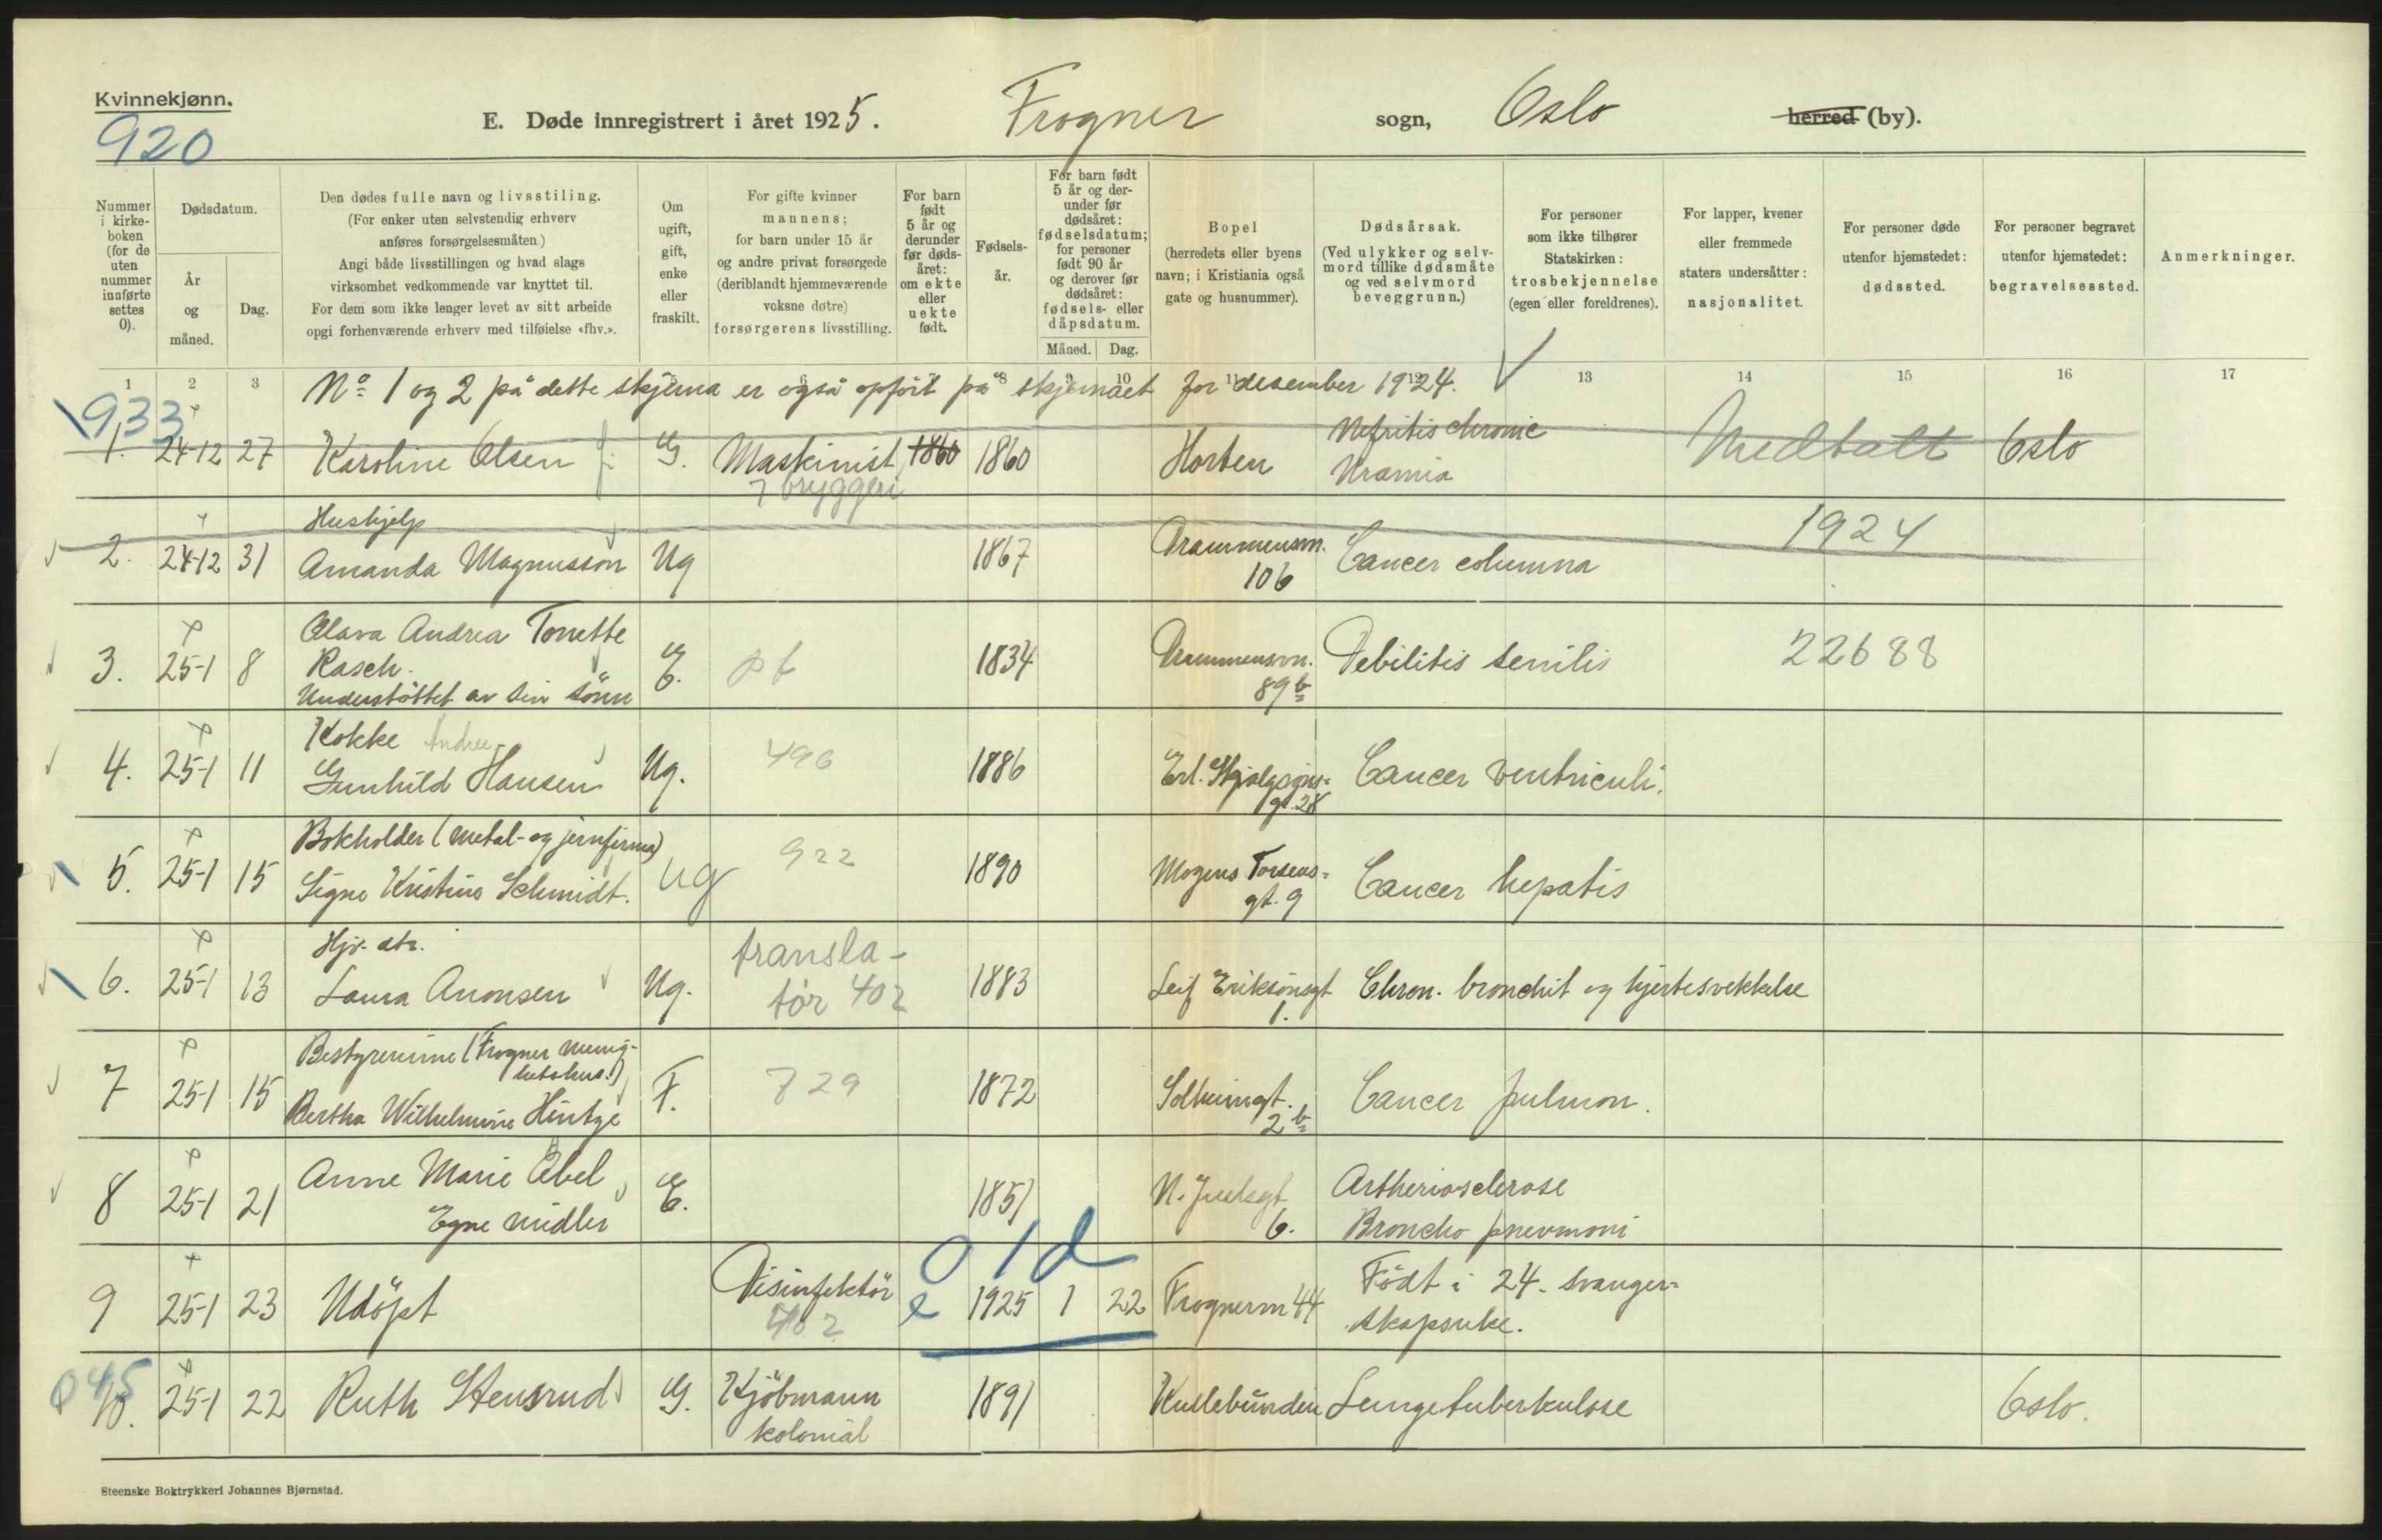 Kvinnekjønn.
920
E. Døde innregistrert i året 1925. Frogner sogn, Oslo herred (by).
Nummer i kirke-boken (for de uten nummer innførte settes 0).
Dødsdatum.
År og måned.
Dag.
Den dødes fulle navn og livsstiling.
(For enker uten selvstendig erhverv
anføres forsørgelsesmåten.)
Angi både livsstillingen og hvad slags
virksomhet vedkommende var knyttet til.
For dem som ikke lenger levet av sitt arbeide
opgi forhenværende erhverv med tilføielse «fhv.».
Om ugift, gift, enke eller fraskilt.
For gifte kvinner
mannens;
for barn under 15 år
og andre privat forsørgede
(deriblandt hjemmeværende
voksne døtre)
forsørgerens livsstilling.
For barn født 5 år og derunder før døds-året: om ekte eller uekte født.
Fødsels-år.
For barn født 5 år og der-under før dødsåret: fødselsdatum; for personer født 90 år og derover før dødsåret: fødsels- eller dåpsdatum.
Måned. Dag.
Bopel
(herredets eller byens
navn; i Kristiania også
gate og husnummer).
Dødsårsak.
(Ved ulykker og selv-
mord tillike dødsmåte
og ved selvmord
beveggrunn.)
For personer
som ikke tilhører
Statskirken:
trosbekjennelse
(egen eller foreldrenes).
For lapper, kvener
eller fremmede
staters undersåtter:
nasjonalitet.
For personer døde
utenfor hjemstedet:
dødssted.
For personer begravet
utenfor hjemstedet:
begravelsessted.
Anmerkninger.
1 2 3 5 6 7 8 9 10 11 12 13 14 15 16 17
No 1 og 2 på dette skjema er også opført på skjemaet for desember 1924.
933
1. 24-12 27 Karoline Olsen G. Maskinist 1860 1860 Horten Nefritis chronic Medtatt Oslo
bryggeri Uramia
Hushjelp
2. 24-12 31 Amanda Magnusson Ug 1867 Drammensvn. 106 Cancer columna 1924
Olava Andrea Tonette
3. 25-1 8 Rasch. E. pf 1834 Drammensvn. 89 b Debilitis senilis 22688
Understöttet av sin sönn
Kokke Andree
4. 25-1 11 Gunhild Hansen Ug. 496 1886 Erl. Skjalgsøns= gt. 28 Cancer ventriculi.
Bokholder (metal- og jernfirma)
5. 25-1 15 Signe Kristine Schmidt. Ug 922 1890 Mogens Torsens= gt. 9 Cancer hepatis
Hjv. dtr.
6. 25-1 13 Laura Aronsen Ug. transla-tör 402 1883 Leif Eriksönsgt 1. Chron. bronchit og hjertesvekkelse
Bestyrerinne (Frogner menig-
hetshus.)
7 25-1 15 Bertha Wilhelmine Hintze F. 729 1872 Solheimgt. 2 b Cancer pulmon.
8 25-1 21 Anne Marie Abel E. 1851 N. Juelsgt 6. Artheriosclerose
Egne midler Broncho pnevmoni
o 1d
9 25-1 23 Udöpt Disinfektör 402 e 1925 1 22 Frognervn 44 Födt i 24. svanger=
skapsuke.
045
10. 25-1 22 Ruth Stensrud G. Kjöbmann 1891 Kullebunden Lungetuberkulose Oslo.
kolonial
Steenske Boktrykkeri Johannes Bjørnstad.